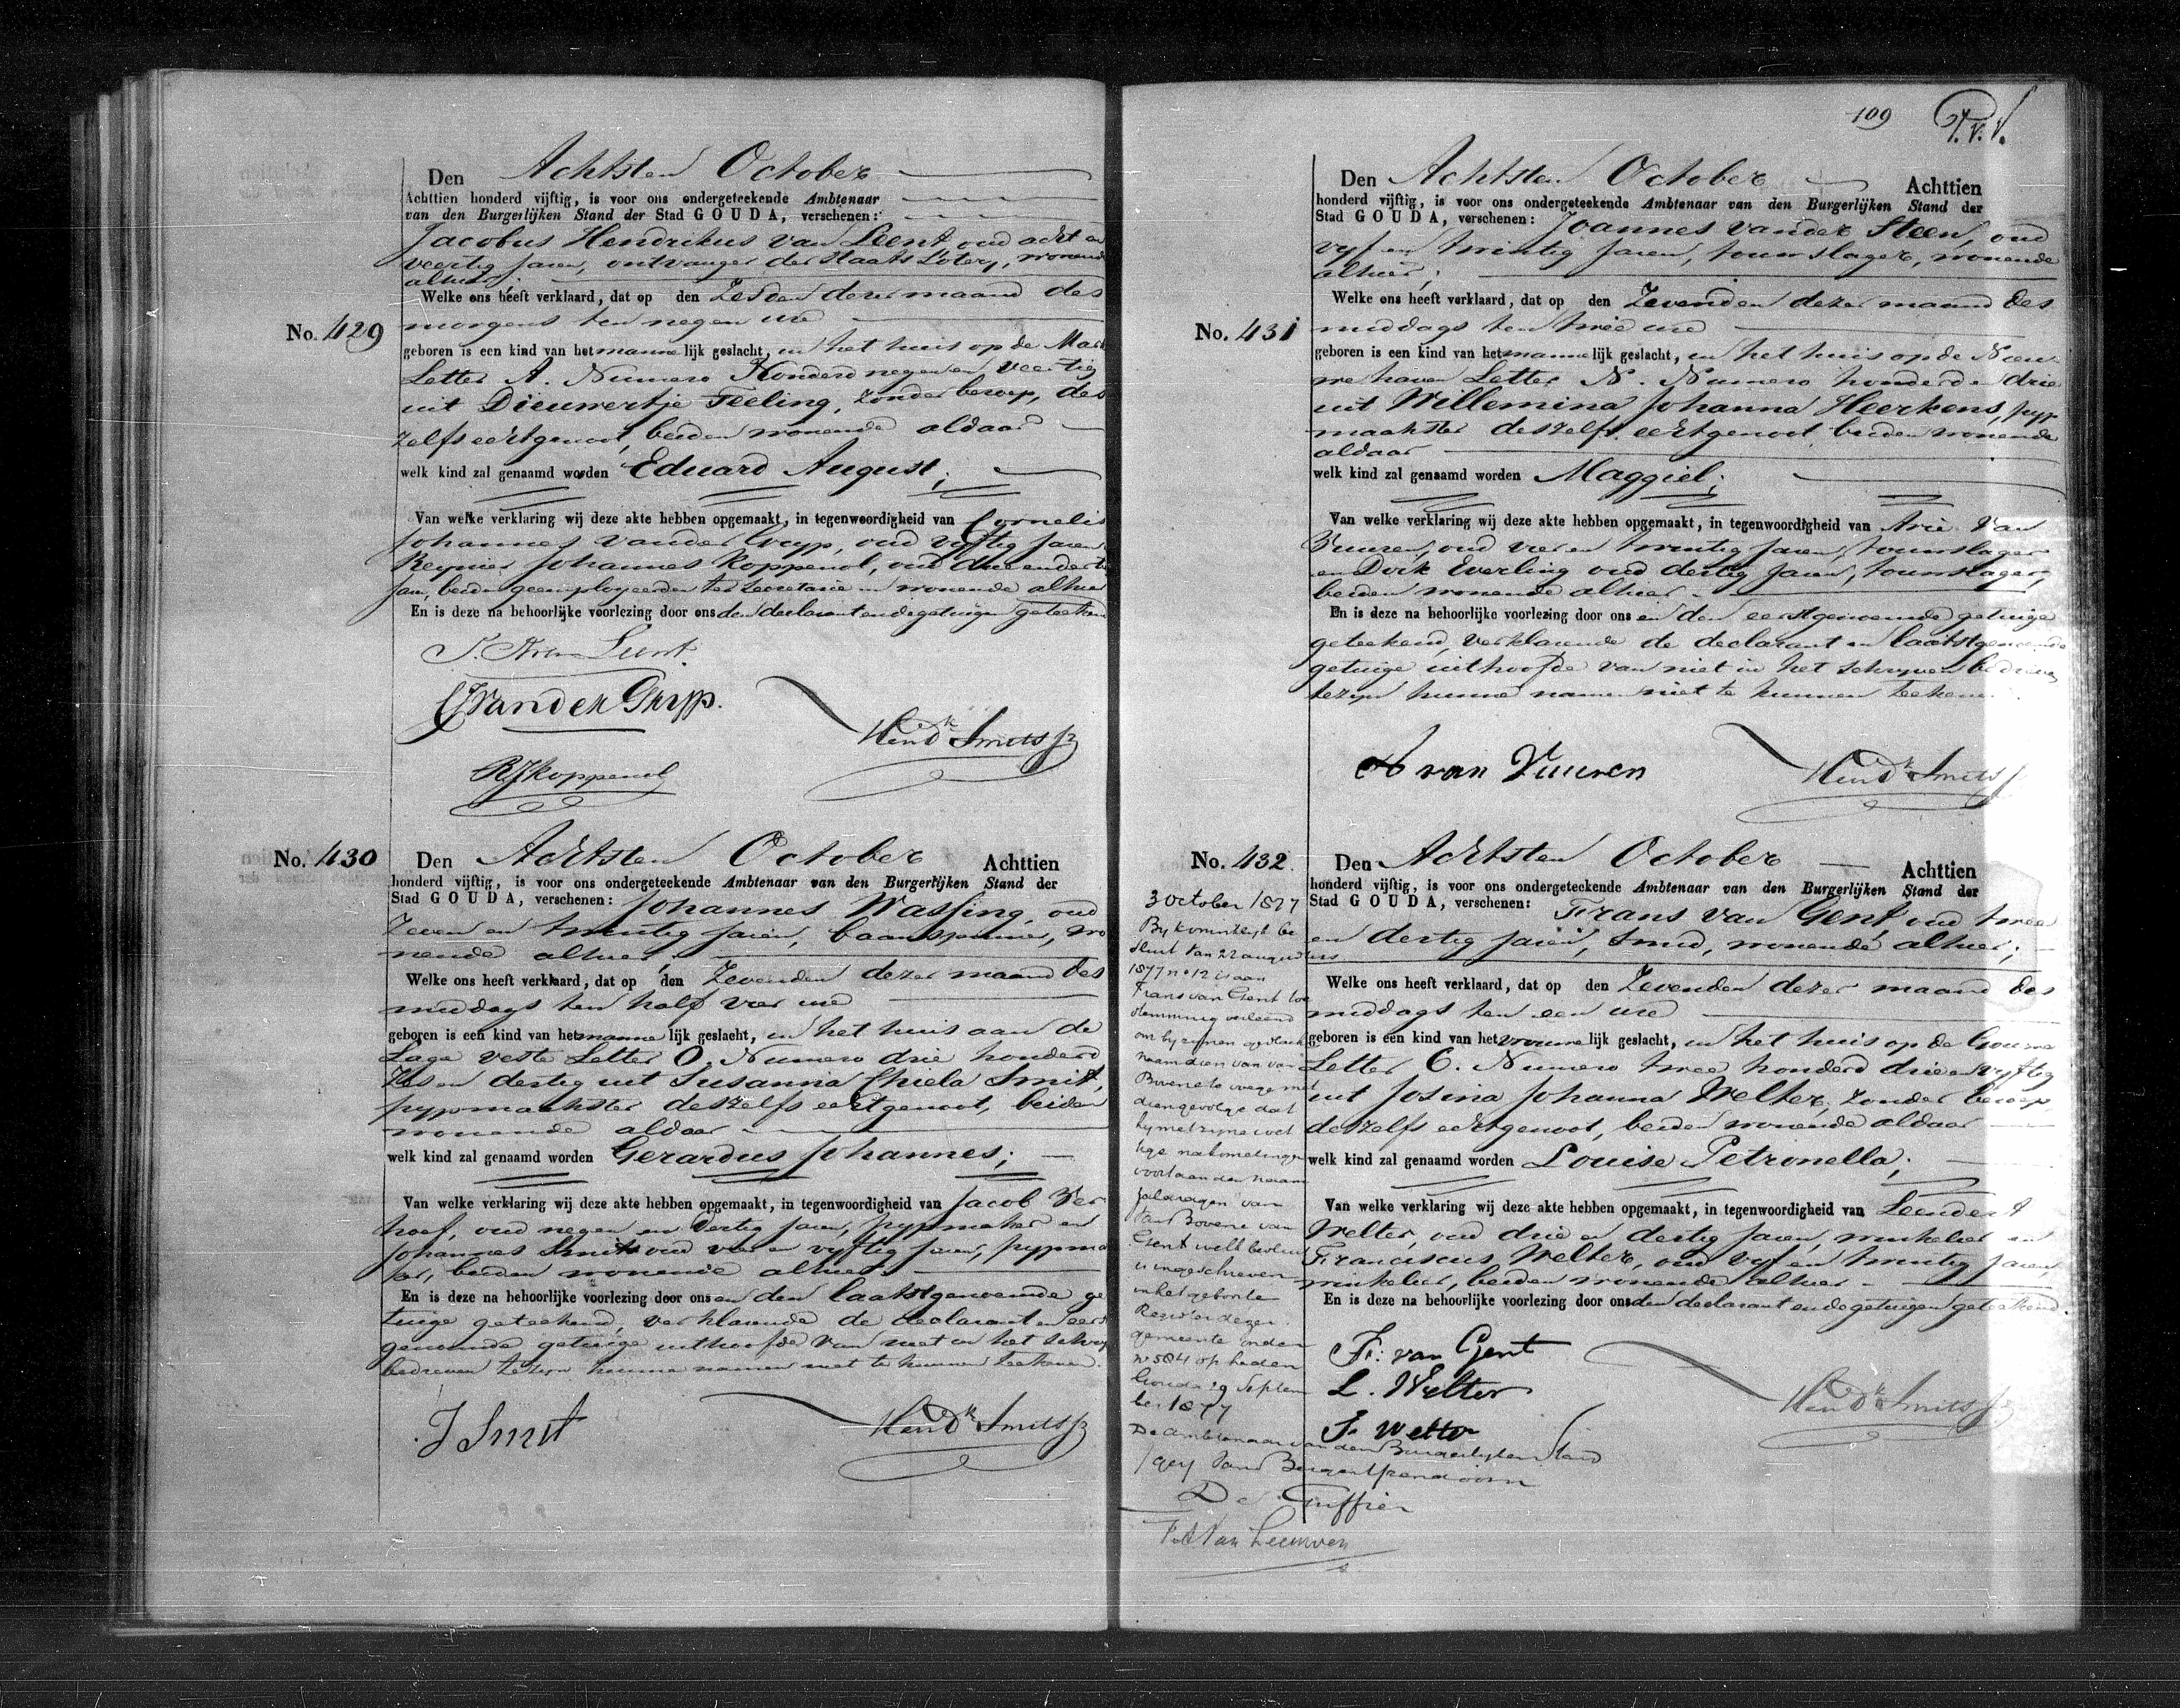 Den Achtsten October
Achttien honderd vijftig, is voor ons ondergeteekende Ambtenaar
van den Burgerlijken Stand der Stad GOUDA, verschenen:
Jacobus Hendrikus van Leent oud acht en
veertig Jaren, ontvanger der Staats Lotery, wonende
alhier;
Welke ons heeft verklaard, dat op den Zesden dezer maand des
morgens ten negen ure
No. 429
geboren is een kind van het mannelijk geslacht, in het huis op de Mark
Letter A. Numero Honderd negen en Veertig
uit Dieuwertje Teeling, zonder beroep, des
zelfs echtgenoot, beiden wonende aldaar
welk kind zal genaamd worden Eduard August;
Van welke verklaring wij deze akte hebben opgemaakt, in tegenwoordigheid van Cornelis
Johannes van der Gryp, oud vyftig Jaren
Reynier Johannes Koppenol, oud drie en dertig
Jaar, beiden geemployeerden ter Secretarie en wonende alhier
En is deze na behoorlijke voorlezing door ons den declarant en de getuigen geteekend
CJ Van der Gryp.
Hendk Smits Jz
RJKoppenol
No. 430
Den Achtsten October Achttien
honderd vijftig, is voor ons ondergeteekende Ambtenaar van den Burgerlijken Stand der
Stad GOUDA, verschenen: Johannes Wassing, oud
Zeven en twintig Jaren, baanspinner, wo
nende alhier;
Welke ons heeft verklaard, dat op den Zevenden dezer maand des
middags ten half vier ure
geboren is een kind van het mannelijk geslacht, in het huis aan de
Lage veste Letter O. Numero drie honderd
Zes en dertig uit Susanna Chiela Smit,
pypmaakster deszelfs echtgenoot, beiden
wonende aldaar
welk kind zal genaamd worden Gerardus Johannes;
Van welke verklaring wij deze akte hebben opgemaakt, in tegenwoordigheid van Jacob Ver
hoef, oud negen en dertig Jaren, pypmaker en
Johannes Smit oud vier en vyftig Jaren, pypma
ker, beiden wonende alhier
En is deze na behoorlijke voorlezing door ons en den laatstgenoemde ge
tuige geteekend, verklarende de declarant en eerst
genoemde getuige uithoofde van niet in het schryven
bedreven te zyn hunne namen niet te kunnen teekenen.
J Smit
Hendk Smits Jz
109
T.v.V.
Den Achtsten October Achttien
honderd vijftig, is voor ons ondergeteekende Ambtenaar van den Burgerlijken Stand der
Stad GOUDA, verschenen: Joannes van der Steen, oud
vyf en twintig Jaren, touwslager, wonende
alhier;
Welke ons heeft verklaard, dat op den Zevenden dezer maand des
middags ten twee ure
No. 431
geboren is een kind van het mannelijk geslacht, in het huis op de Nieu
we haven Letter N. Numero honderd en drie
uit Willemina Johanna Heerkens, pyp
maakster deszelfs echtgenoot beiden wonende
aldaar
welk kind zal genaamd worden Maggiel;
Van welke verklaring wij deze akte hebben opgemaakt, in tegenwoordigheid van Arie van
Vuuren, oud vier en twintig Jaren, touwslager
en Dirk Everling oud dertig Jaren, touwslager,
beiden wonende alhier
En is deze na behoorlijke voorlezing door ons en den eerstgenoemde getuige
geteekend, verklarende de declarant en laatstgenoemde
getuige uithoofde van niet in het schryven bedreven
te zyn hunne namen niet te kunnen teekenen.
A van Vuuren
Hendk Smits Jz
No. 432.
Den Achtsten October Achttien
honderd vijftig, is voor ons ondergeteekende Ambtenaar van den Burgerlijken Stand der
Stad GOUDA, verschenen: Frans van Gent, oud twee
en dertig Jaren, Smid, wonende alhier;
Welke ons heeft verklaard, dat op den Zevenden dezer maand des
middags ten een ure
geboren is een kind van het vrouwelijk geslacht, in het huis op de Gouwe
Letter C. Numero twee honderd drie en vyftig
uit Josina Johanna Welter, zonder beroep,
deszelfs echtgenoot, beiden wonende aldaar
welk kind zal genaamd worden Louise Petronella;
Van welke verklaring wij deze akte hebben opgemaakt, in tegenwoordigheid van Leendert
Welter, oud drie en dertig Jaren, winkelier en
Franciscus Welter, oud vyf en twintig Jaren,
winkelier, beiden wonende alhier
En is deze na behoorlijke voorlezing door ons den declarant en de getuigen geteekend.
F: van Gent
L. Welter
F. Welter
Hendk Smits Jz
3 October 1877
By koninklyk be
sluit van 22 augustus
1877 no 12 is aan
Frans van Gent toe
stemming verleend
om by zynen geslachts
naam dien van van
Bovene te voegen met
dien gevolge dat
hy met zyne wet
tige nakomelingen
voortaan den naam
zal dragen van
van Bovene van
Gent welk besluit
is ingeschreven
in het geboorte
Register dezer
gemeente onder
no 584 op heden
Gouda 29 Septem
ber 1877
De Ambtenaar van den Burgerlyken Stand
De Griffier
Van Leeuwen